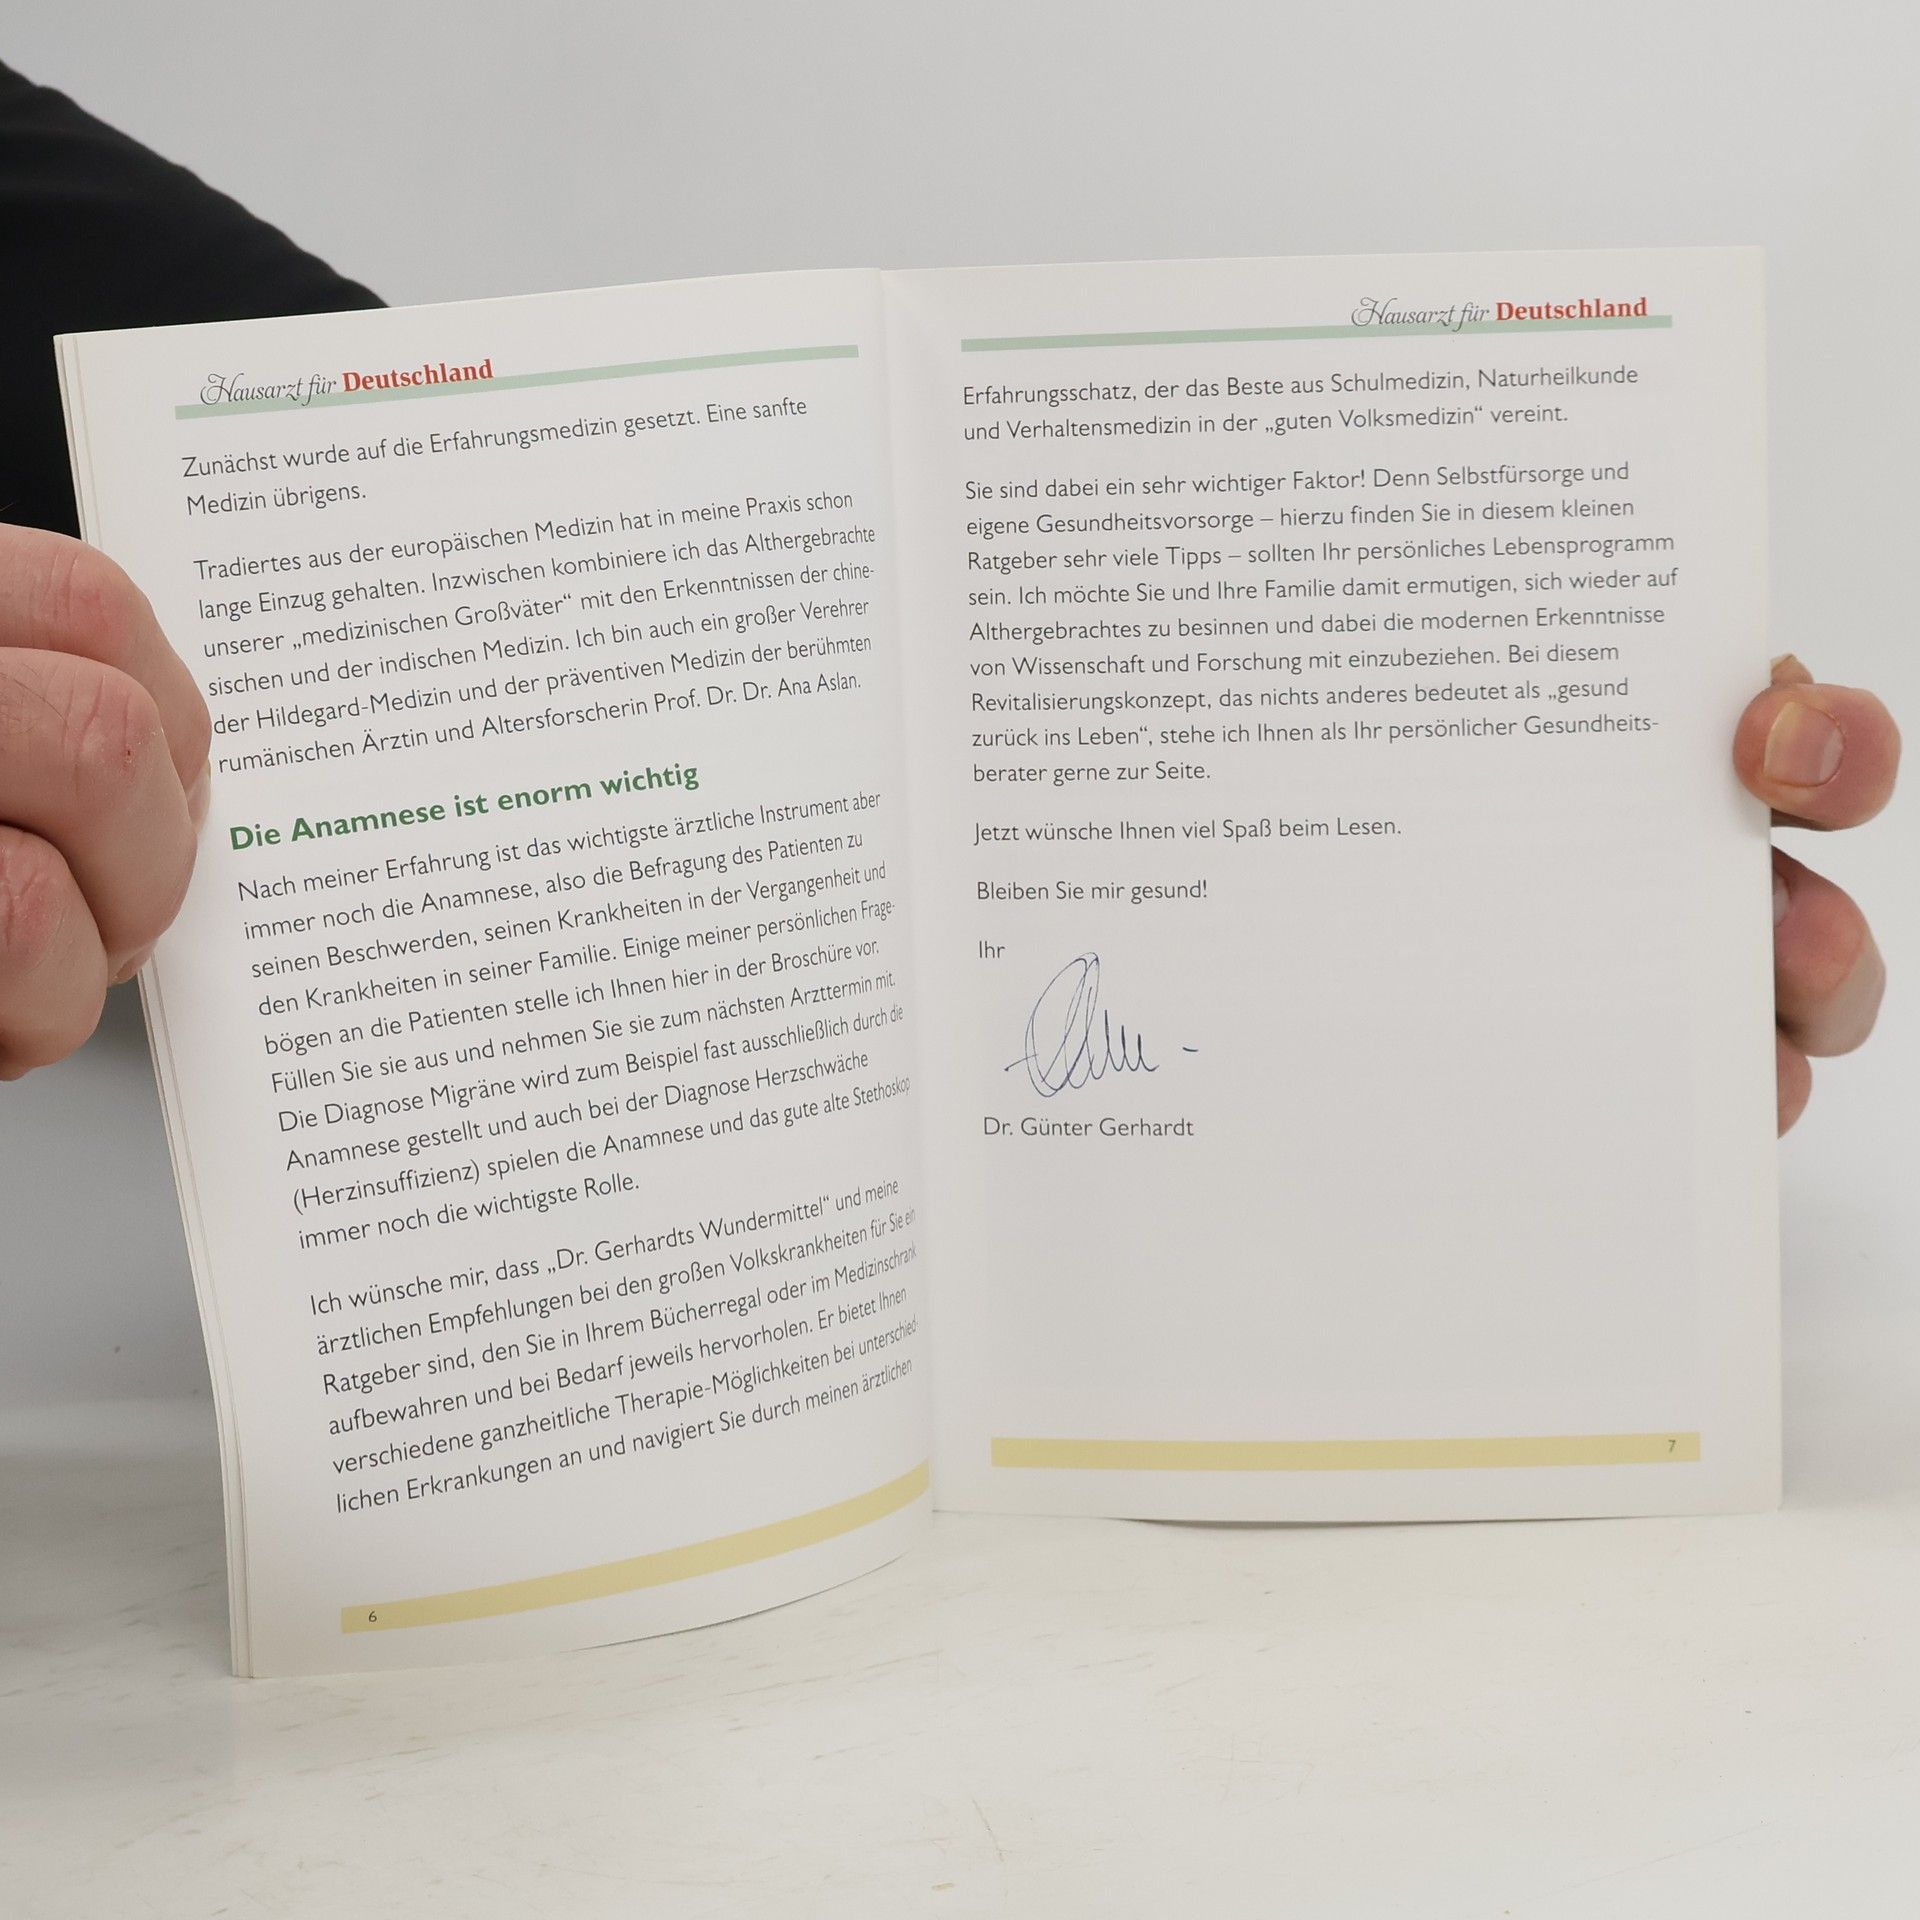 Hausarzt für Deutschland
Zunächst wurde auf die Erfahrungsmedizin gesetzt. Eine sanfte
Medizin übrigens.
Tradiertes aus der europäischen Medizin hat in meine Praxis schon
lange Einzug gehalten. Inzwischen kombiniere ich das Althergebrachte
unserer „medizinischen Großväter“ mit den Erkenntnissen der chine-
sischen und der indischen Medizin. Ich bin auch ein großer Verehrer
der Hildegard-Medizin und der präventiven Medizin der berühmten
rumänischen Ärztin und Altersforscherin Prof. Dr. Dr. Ana Aslan.
Die Anamnese ist enorm wichtig
Nach meiner Erfahrung ist das wichtigste ärztliche Instrument aber
immer noch die Anamnese, also die Befragung des Patienten zu
seinen Beschwerden, seinen Krankheiten in der Vergangenheit und
den Krankheiten in seiner Familie. Einige meiner persönlichen Frage-
bögen an die Patienten stelle ich Ihnen hier in der Broschüre vor.
Füllen Sie sie aus und nehmen Sie sie zum nächsten Arzttermin mit.
Die Diagnose Migräne wird zum Beispiel fast ausschließlich durch die
Anamnese gestellt und auch bei der Diagnose Herzschwäche
(Herzinsuffizienz) spielen die Anamnese und das gute alte Stethoskop
immer noch die wichtigste Rolle.
Ich wünsche mir, dass „Dr. Gerhardts Wundermittel“ und meine
ärztlichen Empfehlungen bei den großen Volkskrankheiten für Sie ein
Ratgeber sind, den Sie in Ihrem Bücherregal oder im Medizinschrank
aufbewahren und bei Bedarf jeweils hervorholen. Er bietet Ihnen
verschiedene ganzheitliche Therapie-Möglichkeiten bei unterschied-
lichen Erkrankungen an und navigiert Sie durch meinen ärztlichen
6
Hausarzt für Deutschland
Erfahrungsschatz, der das Beste aus Schulmedizin, Naturheilkunde
und Verhaltensmedizin in der „guten Volksmedizin“ vereint.
Sie sind dabei ein sehr wichtiger Faktor! Denn Selbstfürsorge und
eigene Gesundheitsvorsorge – hierzu finden Sie in diesem kleinen
Ratgeber sehr viele Tipps – sollten Ihr persönliches Lebensprogramm
sein. Ich möchte Sie und Ihre Familie damit ermutigen, sich wieder auf
Althergebrachtes zu besinnen und dabei die modernen Erkenntnisse
von Wissenschaft und Forschung mit einzubeziehen. Bei diesem
Revitalisierungskonzept, das nichts anderes bedeutet als „gesund
zurück ins Leben“, stehe ich Ihnen als Ihr persönlicher Gesundheits-
berater gerne zur Seite.
Jetzt wünsche Ihnen viel Spaß beim Lesen.
Bleiben Sie mir gesund!
Ihr
Dr. Günter Gerhardt
7